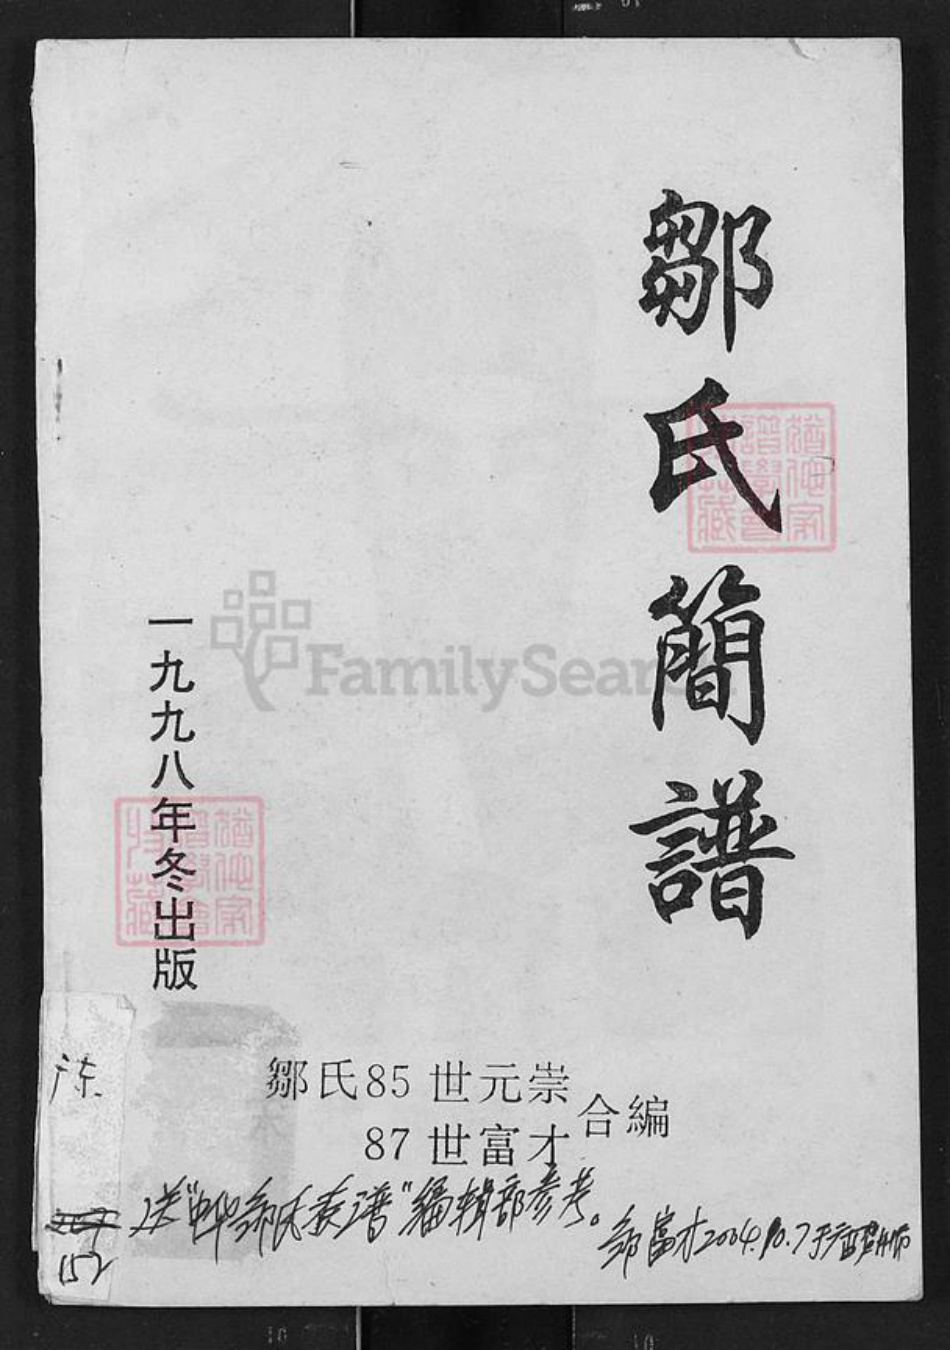 鄒氏簡譜
一九九八年冬出版
鄒氏85世元崇
87世富才
合編
送"中华邹氏族谱"编辑部参考。
邹富才2004.10.7于
广东
152
FamilySearch